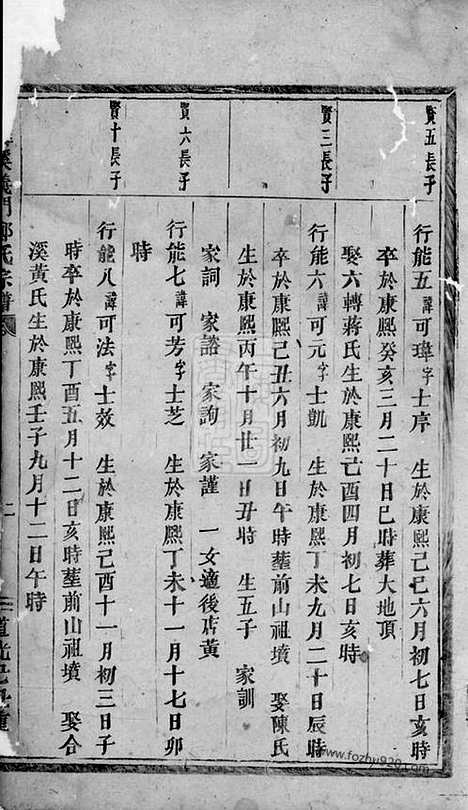 賢五長子
行能五諱可瑋字士序 生於康熙己巳六月初七日亥時
卒於康熙癸亥三月二十日巳時葬大地頂
娶六轉蔣氏生於康熙己酉四月初七日亥時
賢三長子
行能六諱可元字士凱 生於康熙丁未九月二十日辰時
卒於康熙己丑六月初九日午時塟前山祖墳 娶陳氏
生於康熙丙午十月廿一日丑時 生五子 家訓
家詞 家諮 家詢 家謹 一女適後店黃
賢六長子
行能七諱可芳字士芝 生於康熙丁未十一月十七日卯
時
賢十長子
行能八諱可法字士效 生於康熙己酉十一月初三日子
時卒於康熙丁酉五月十二日亥時塟前山祖墳 娶合
溪黃氏生於康熙壬子九月十二日午時
溪義門鄭氏宗譜
二
道光己
重
www.fozhu920.com